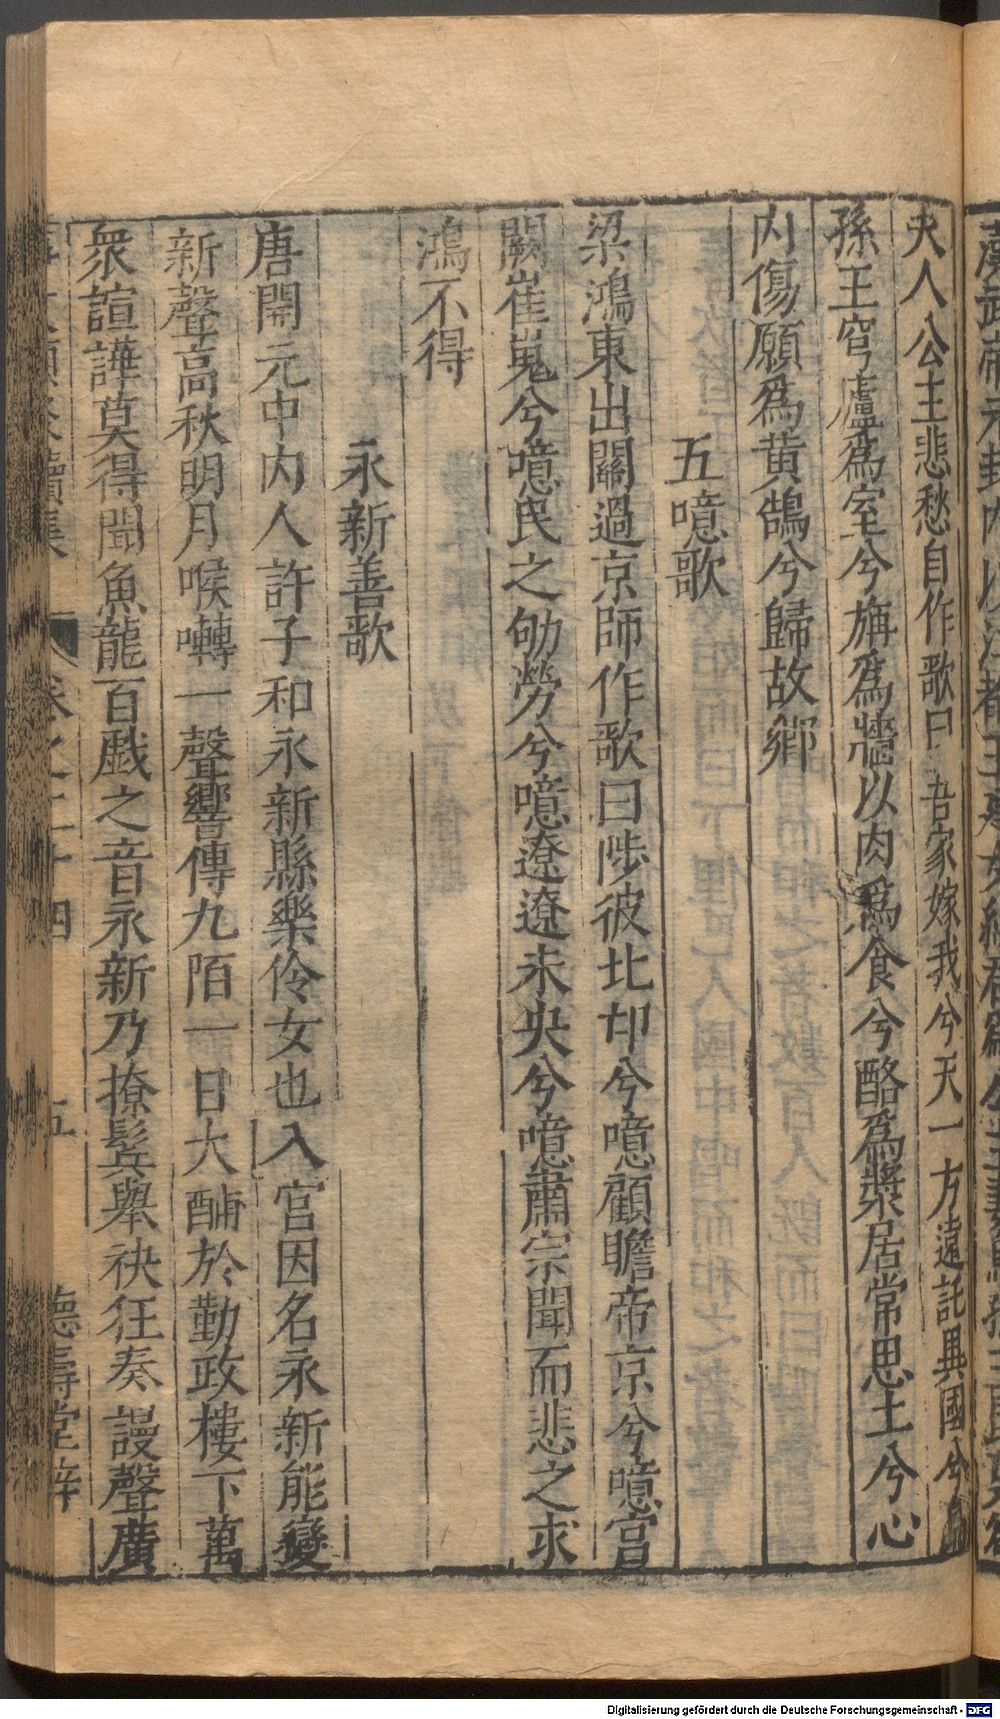 夫人公主悲愁自作歌曰吾家嫁我兮天一方遠託異國兮烏
孫王穹廬爲室兮旃爲牆以肉爲食兮酪爲漿居常思土兮心
内傷願爲黄鵠兮歸故鄉
五噫歌
梁鴻東出關過京師作歌曰陟彼北邙兮噫顧瞻帝京兮噫宫
闕崔嵬兮噫民之劬勞兮噫遼遼未央兮噫肅宗聞而悲之求
鴻不得
永新善歌
唐開元中内人許子和永新縣樂伶女也入宫因名永新能變
新聲高秋明月喉囀一聲響傳九陌一日大酺於勤政樓下萬
衆諠譁莫得聞魚龍百戲之音永新乃撩鬂舉袂狂奏謾聲廣
卷之二十四 五 德壽堂梓
Digitalisierung gefördert durch die Deutsche Forschungsgemeinschaft - DFG